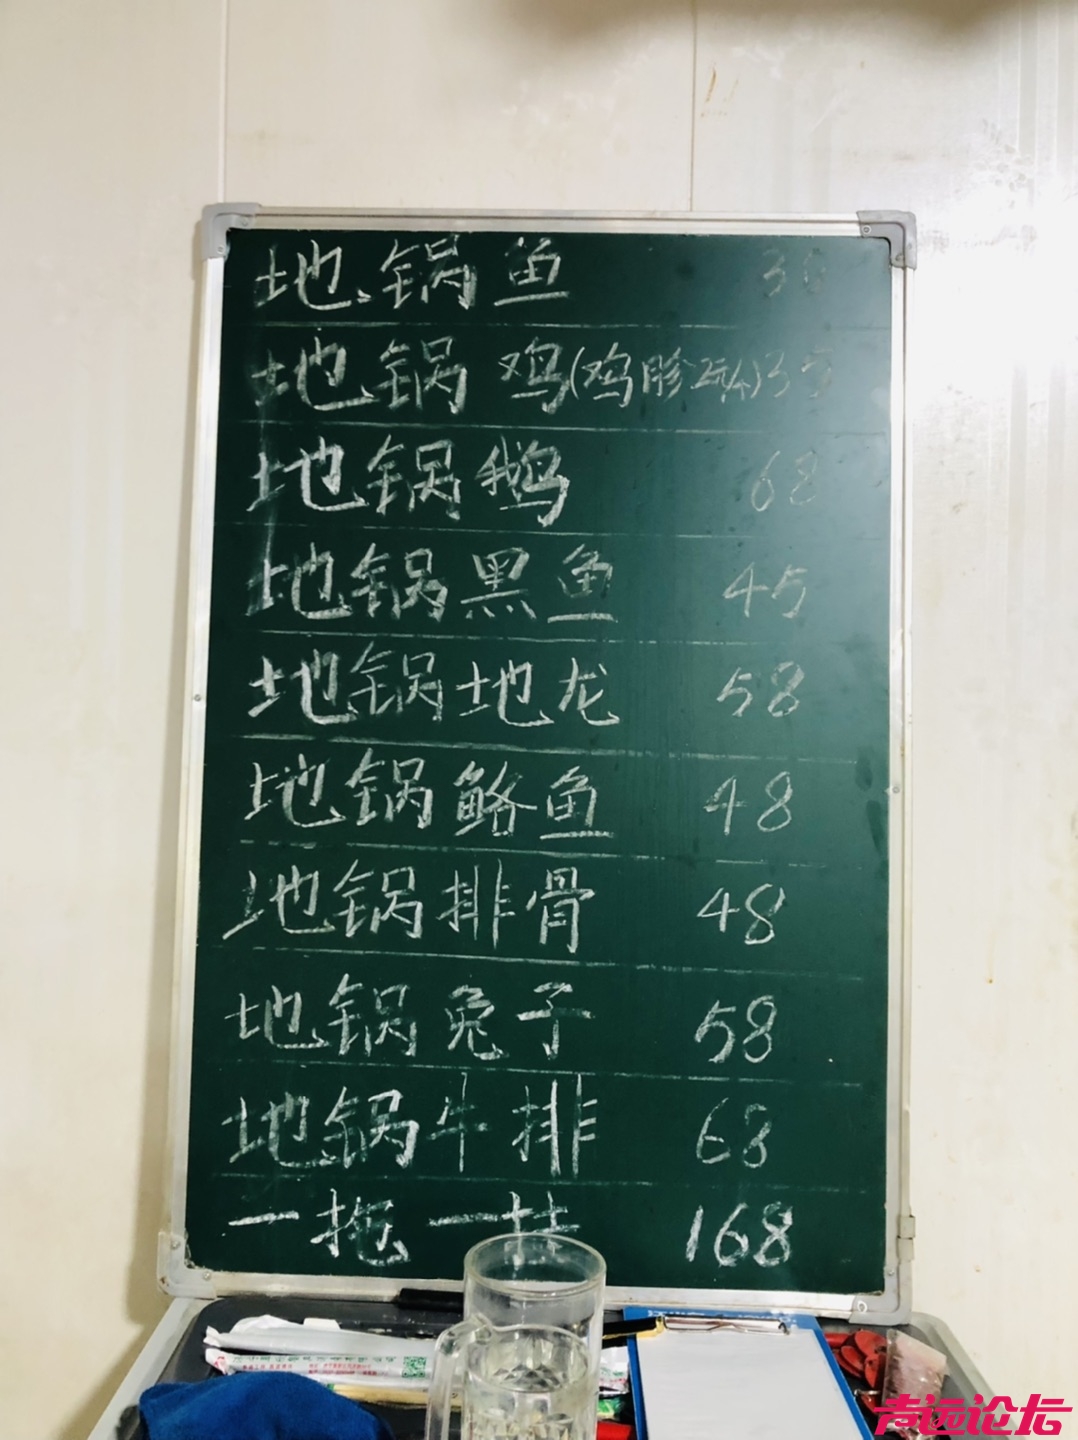 地锅鱼 38
地锅鸡(鸡胗2元/个)35
地锅鹅 68
地锅黑鱼 45
地锅地龙 58
地锅鲶鱼 48
地锅排骨 48
地锅兔子 58
地锅牛排 68
一拖一挂 168
声远论坛